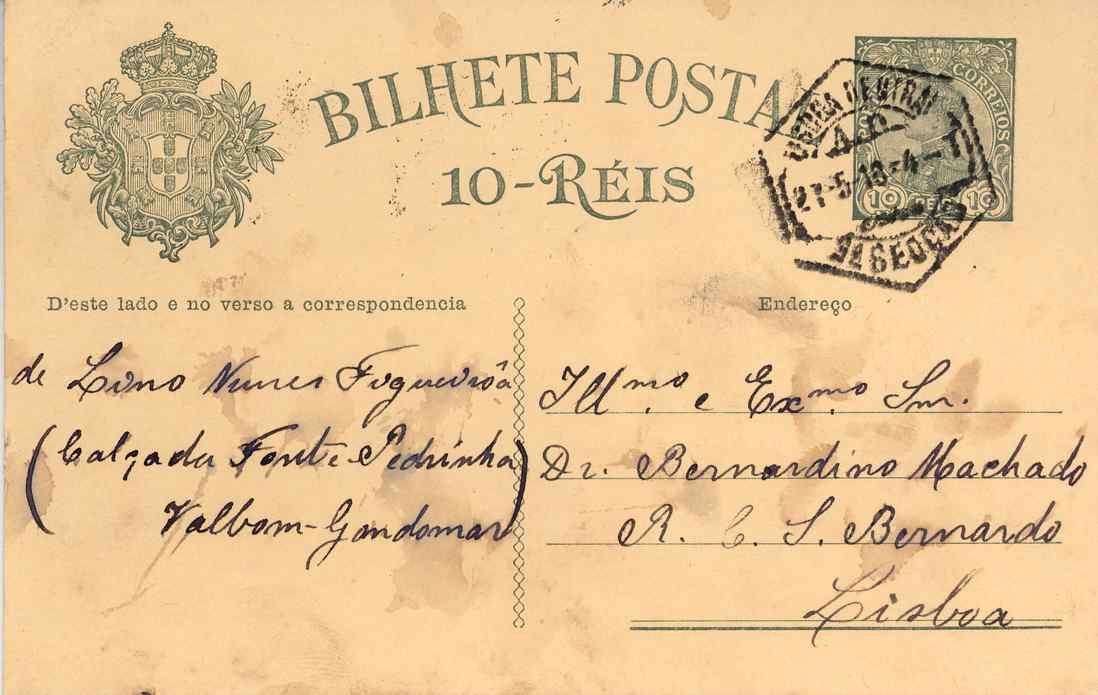 BILHETE POSTAL
10-RÉIS
CORREIOS
10 REIS 10
LISBOA CENTRAL
27-5-10-4-T
3A SECÇÃO
D'este lado e no verso a correspondencia
Endereço
de Lino Nunes Figueirôa
(Calçada Fonte Pedrinha)
Valbom-Gondomar
Illmo. e Exmo. Snr.
Dr. Bernardino Machado
R. C. S. Bernardo
Lisboa